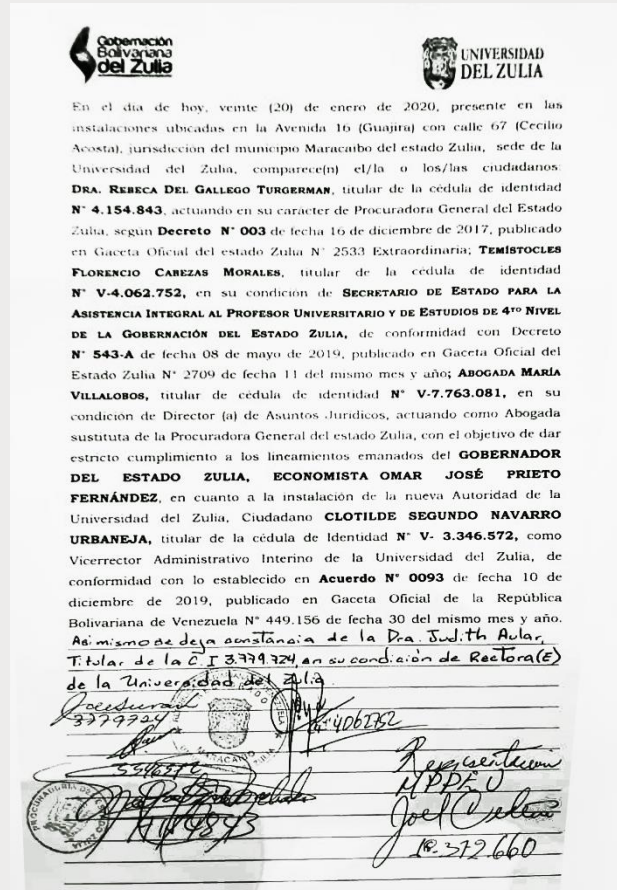 Gobernación
Bolivariana
del Zulia
UNIVERSIDAD
DEL ZULIA
En el día de hoy, veinte (20) de enero de 2020, presente en las
instalaciones ubicadas en la Avenida 16 (Guajira) con calle 67 (Cecilio
Acosta), jurisdicción del municipio Maracaibo del estado Zulia, sede de la
Universidad del Zulia, comparece(n) el/la o los/las ciudadanos:
DRA. REBECA DEL GALLEGO TURGERMAN, titular de la cédula de identidad
N° 4.154.843, actuando en su carácter de Procuradora General del Estado
Zulia, según Decreto N° 003 de fecha 16 de diciembre de 2017, publicado
en Gaceta Oficial del estado Zulia N° 2533 Extraordinaria; TEMÍSTOCLES
FLORENCIO CABEZAS MORALES, titular de la cédula de identidad
N° V-4.062.752, en su condición de SECRETARIO DE ESTADO PARA LA
ASISTENCIA INTEGRAL AL PROFESOR UNIVERSITARIO Y DE ESTUDIOS DE 4TO NIVEL
DE LA GOBERNACIÓN DEL ESTADO ZULIA, de conformidad con Decreto
N° 543-A de fecha 08 de mayo de 2019, publicado en Gaceta Oficial del
Estado Zulia N° 2709 de fecha 11 del mismo mes y año; ABOGADA MARÍA
VILLALOBOS, titular de cédula de identidad N° V-7.763.081, en su
condición de Director (a) de Asuntos Jurídicos, actuando como Abogada
sustituta de la Procuradora General del estado Zulia, con el objetivo de dar
estricto cumplimiento a los lineamientos emanados del GOBERNADOR
DEL ESTADO ZULIA, ECONOMISTA OMAR JOSÉ PRIETO
FERNÁNDEZ, en cuanto a la instalación de la nueva Autoridad de la
Universidad del Zulia, Ciudadano CLOTILDE SEGUNDO NAVARRO
URBANEJA, titular de la cédula de Identidad N° V- 3.346.572, como
Vicerrector Administrativo Interino de la Universidad del Zulia, de
conformidad con lo establecido en Acuerdo N° 0093 de fecha 10 de
diciembre de 2019, publicado en Gaceta Oficial de la República
Bolivariana de Venezuela N° 449.156 de fecha 30 del mismo mes y año.
Asimismo se deja constancia de la Dra. Judith Aular,
Titular de la C.I 3.779.724, en su condición de Rectora(E)
de la Universidad del Zulia
3779724
4062752
MARACAIBO
Representación
MPPEU
Joel
18.372.660